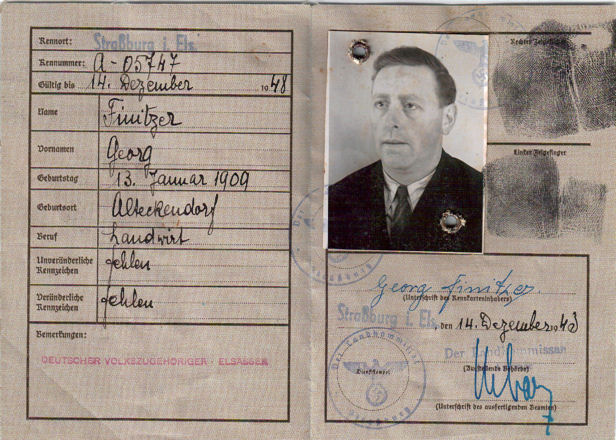 Kennort: Straßburg i. Els.
Kennummer: A-05747
Gültig bis 14. Dezember 1948
Name Finitzer
Vornamen Georg
Geburtstag 13. Januar 1909
Geburtsort Alteckendorf
Beruf Landwirt
Unveränderliche Kennzeichen fehlen
Veränderliche Kennzeichen fehlen
Bemerkungen:
DEUTSCHER VOLKSZUGEHÖRIGER - ELSÄSSER
Rechter Zeigefinger
Linker Zeigefinger
Georg Finitzer.
(Unterschrift des Kennkarteninhabers)
Straßburg i. Els., den 14. Dezember 1943
Der Landkommissar
Der Landkommissar
(Ausstellende Behörde)
Dienststempel
Straßburg
(Unterschrift des ausfertigenden Beamten)